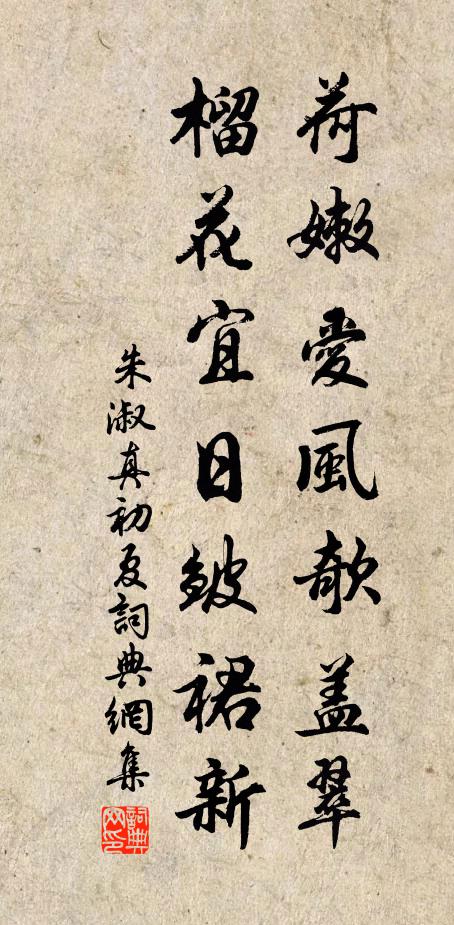 荷嫩愛風欹蓋翠
榴花宜日皺裙新
朱淑真初夏詞典網集
詞典網印